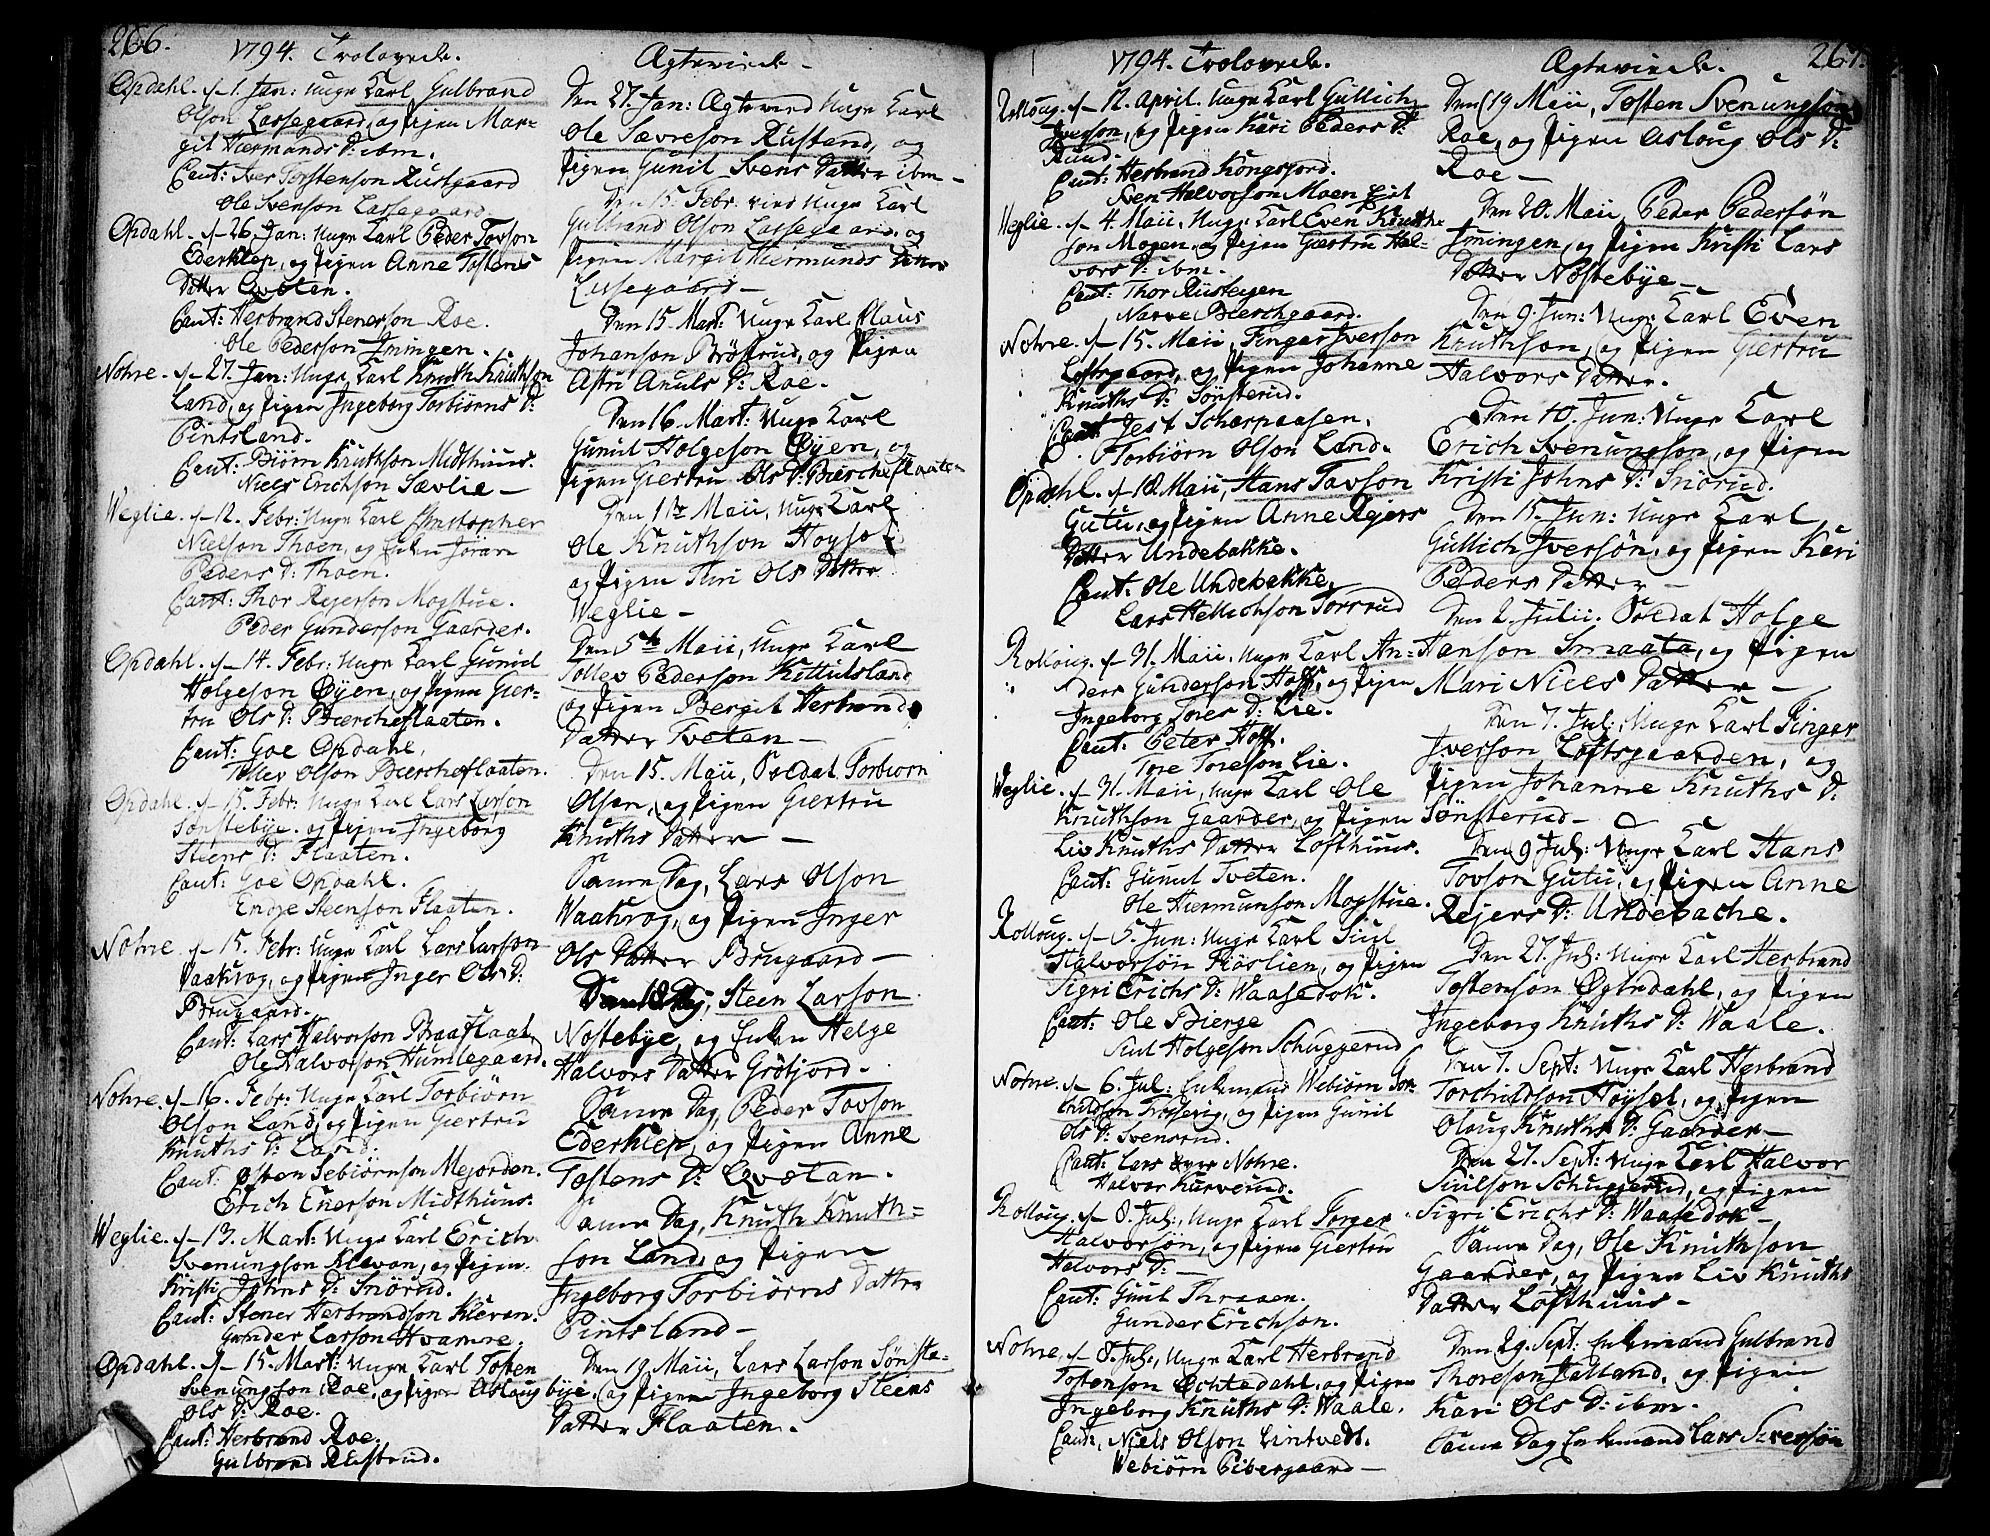 266.
1794. Trolovede.
Opdahl. d. 1. Jan: Unge Karl Gulbrand
Olson Lassegaard, og Pigen Mar-
git Hermunds D: ibm.
Caut: Iver Torstenson Rustgaard
Ole Svenson Lassegaard.
Opdahl. d. 26. Jan: Unge Karl Peder Tovson
Ederklep, og Pigen Anne Tostens
Datter Qveten.
Caut: Herbrand Stenerson Roe.
Ole Pederson Imingen.
Nohre. d. 27. Jan: Unge Karl Knuth Knuthson
Land, og Pigen Ingeborg Torbiørns D:
Pintsland.
Caut: Biørn Knuthson Midthuus.
Niels Erichson Sævlie —
Weglie. d. 12. Febr: Unge Karl Christopher
Nielson Thoen, og Enken Jøran
Peders D: Thoen.
Caut: Thor Rejerson Mogstue.
Peder Gunderson Gaarder.
Opdahl. d. 14. Febr: Unge Karl Gunul
Holgeson Øyen, og Pigen Gier-
tru Ols D: Biercheflaaten.
Caut: Goe Opdahl.
Tollev Olson Biercheflaaten.
Opdahl. d. 15. Febr: Unge Karl Lars Larson
Sønstebye. og Pigen Ingeborg
Steens D: Flaaten.
Caut: Goe Opdahl.
Endre Steenson Flaaten.
Nohre d. 15. Febr: Unge Karl Lars Larson
Vaakrog, og Pigen Inger Ols D:
Brugaard.
Caut: Lars Halvorson Braaflaat,
Ole Halvorson Humlegaard.
Nohre. d. 16. Febr: Unge Karl Torbiørn
Olson Land, og Pigen Giertru
Knuths D: Land.
Caut: Østen Sebiørnson Mejorden.
Erich Enerson Midthuus.
Weglie. d. 13. Mart: Unge Karl Erich
Svenungson Kleven, og Pigen
Kristi Johns D: Snørud.
Caut: Stener Herbrandson Kleven.
Gunder Larson Hvamre.
Opdahl. d. 15. Mart: Unge Karl Tosten
Svenungson Roe, og Pigen Asloug
Ols D: Roe.
Caut: Herbrand Roe.
Gulbrand Rustand.
Ægteviede.
Den 27. Jan: Ægteviet Unge Karl
Ole Sævreson Rustand, og
Pigen Gunil Svens Datter ibm —
Den 15. Febr. viet Unge Karl
Gulbrand Olson Lassegaard, og
Pigen Margit Hermunds Datter
Lassegaard —
Den 15. Mart: Unge Karl Claus
Johanson Brøstrud, og Pigen
Astri Anuls D: Roe.
Den 16. Mart: Unge Karl
Gunul Holgeson Øyen, og
Pigen Giertru Ols D: Biercheflaaten
Den 1te Maii, Unge Karl
Ole Knuthson Høysæt
og Pigen Turi Ols Datter
Weglie —
Den 5te Maii, Unge Karl
Tollev Pederson Kittulsland
og Pigen Bergit Herbrands
Datter Tveten —
Den 15. Maii, Soldat Torbiørn
Olsen, og Pigen Giertru
Knuths Datter —
Samme Dag, Lars Olson
Waakrog, og Pigen Inger
Ols Datter Brugaard —
Den 18 Maj, Steen Larson
Nøstebye, og Enken Helge
Halvors Datter Grøtjord.
Samme Dag, Peder Tovson
Ederklep, og Pigen Anne
Tostens D: Qvetan.
Samme Dag, Knuth Knuth-
son Land, og Pigen
Ingeborg Torbiørns Datter
Pintsland —
Den 19 Maii, Lars Larson Sønste-
bye, og Pigen Ingeborg Steens
Datter Flaaten.
267.
1794. Trolovede.
Rolloug. d. 12. April. Unge Karl Gullich
Iverson, og Pigen Kari Peders D:
Ruud.
Caut: Herbrand Kongsjord.
Sven Halvorson Moen
Weglie. d. 4. Maii, Unge Karl Even Knuth-
son Mogen, og Pigen Giertru Hal-
vors D: ibm.
Caut: Thor Rustegen
Narve Bierchgaard.
Nohre. d. 15. Maii, Finger Iverson
Loftsgaard, og Pigen Johanne
Knuths D: Sønsterud.
Caut: Jest Scharpaasen.
Torbiørn Olson Land.
Opdahl. d. 18. Maii, Hans Tovson
Gutu, og Pigen Anne Rejers
Datter Undebakke.
Caut: Ole Undebakke,
Lars Hellichson Torrud
Rolloug. d. 31. Maii, Unge Karl An-
ders Gunderson Hoff, og Pigen
Ingeborg Tores D: Lie.
Caut: Peter Hoff.
Tore Toreson Lie.
Weglie. d. 31. Maii, Unge Karl Ole
Knuthson Gaarder, og Pigen
Liv Knuths Datter Lofthuus.
Caut: Gunul Tveten.
Ole Hermunson Mogstue.
Rolloug. d. 5. Jun: Unge Karl Siul
Halvorsøn Fløslien, og Pigen
Sigri Erichs D: Waasedok.
Caut: Ole Bierge
Siul Holgeson Schuggerud
Nohre. d. 6. Jul: Enkemand Webiørn
og Pigen Gunil
Ols D: Svensrud.
Caut: Lars Nohre.
Halvor Kurverud.
Rolloug. d. 8. Jul:, Unge Karl Torger
Halvorsøn, og Pigen Giertru
Halvors D: —
Caut: Guul Thraaen.
Gunder Erichson.
Nohre, d. 8. Jul:, Unge Karl Herbrand
Tostenson Øchtedahl, og Pigen
Ingeborg Knuths D: Waale.
Caut:, Niels Olson Lintvedt.
Webiørn Bibergaard —
Ægteviede.
Den 19 Maii, Tosten Svenungsøn
Roe, og Pigen Asloug Ols D:
Roe —
Den 20. Maii Peder Pedersøn
Imingen, og Pigen Kristi Lars
Datter Nøstebye —
Den 9. Jun: Unge Karl Even
Knuthson, og Pigen Giertru
Halvors Datter.
Den 10. Jun: Unge Karl
Erich Svenungson, og Pigen
Kristi Johns D: Snørud.
Den 15. Jun: Unge Karl
Gullich Iversøn, og Pigen Kari
Peders Datter —
Den 2. Julii. Soldat Holge
Hanson Smaata, og Pigen
Mari Niels Datter —
Den 7. Jul: Unge Karl Finger
Iverson Loftsgaarden, og
Pigen Johanne Knuths D:
Sønsterud —
Den 9 Jul: Unge Karl Hans
Tovson Gutu, og Pigen Anne
Rejers D: Undebache.
Den 27. Jul: Unge Karl Herbrand
Tostenson Øgtedahl, og Pigen
Ingeborg Knuths D: Waale.
Den 7. Sept: Unge Karl Herbrand
Torchildson Høysæt, og Pigen
Oloug Knuths D: Gaarder —
Den 27. Sept: Unge Karl Halvor
Siulson Schuggerud, og Pigen
Sigri Erichs D: Waasedok —
Samme Dag, Ole Knuthson
Gaarder, og Pigen Liv Knuths
Datter Lofthuus —
Den 29. Sept: Enkemand Gulbrand
Thoreson Jalland, og Pigen
Kari Ols D: ibm.
Samme Dag Enkemand Lars Siversøn